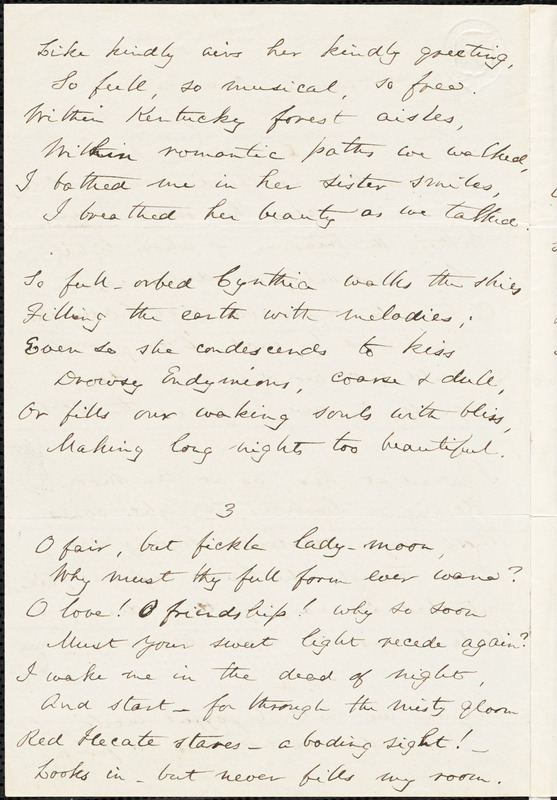 Like kindly airs her kindly greeting,
So full, so musical, so free.
Within Kentucky forest aisles,
Within romantic paths we walked,
I bathed me in her sister smiles,
I breathed her beauty as we talked.
So full-orbed Cynthia walks the skies
Filling the earth with melodies;
Even so she condescends to kiss
Drowsy Endymions, coarse & dull,
Or fills our waking souls with bliss,
Making long nights too beautiful.
3
O fair, but fickle lady-moon,
Why must thy full form ever wane?
O love! O friendship! why so soon
Must your sweet light recede again?
I wake me in the dead of night,
And start – for through the misty gloom
Red Hecate stares – a boding sight! –
Looks in – but never fills my room.